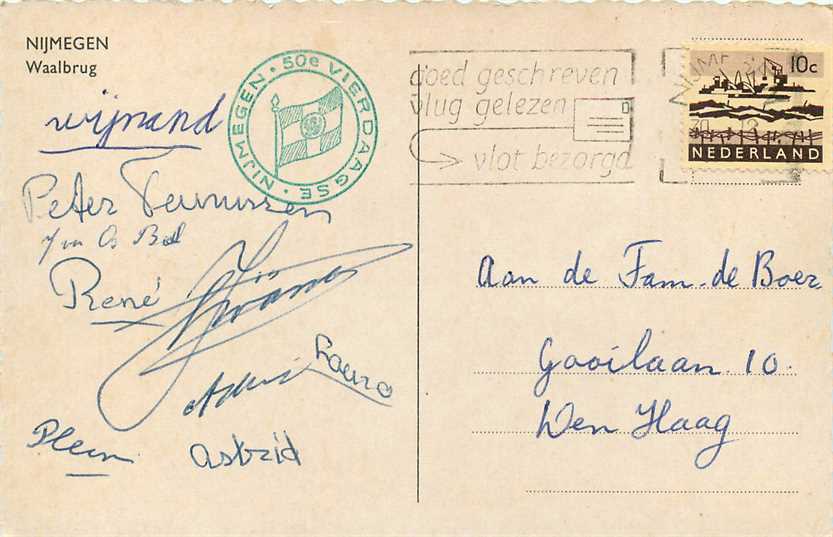 NIJMEGEN
Waalbrug
NIJMEGEN · 50e VIERDAAGSE ·
goed geschreven
vlug gelezen
vlot bezorgd
10c
NEDERLAND
wijnand
Peter Teunissen
René
Laura
Astrid
Plein
Aan de Fam. de Boer
Gooilaan 10.
Den Haag